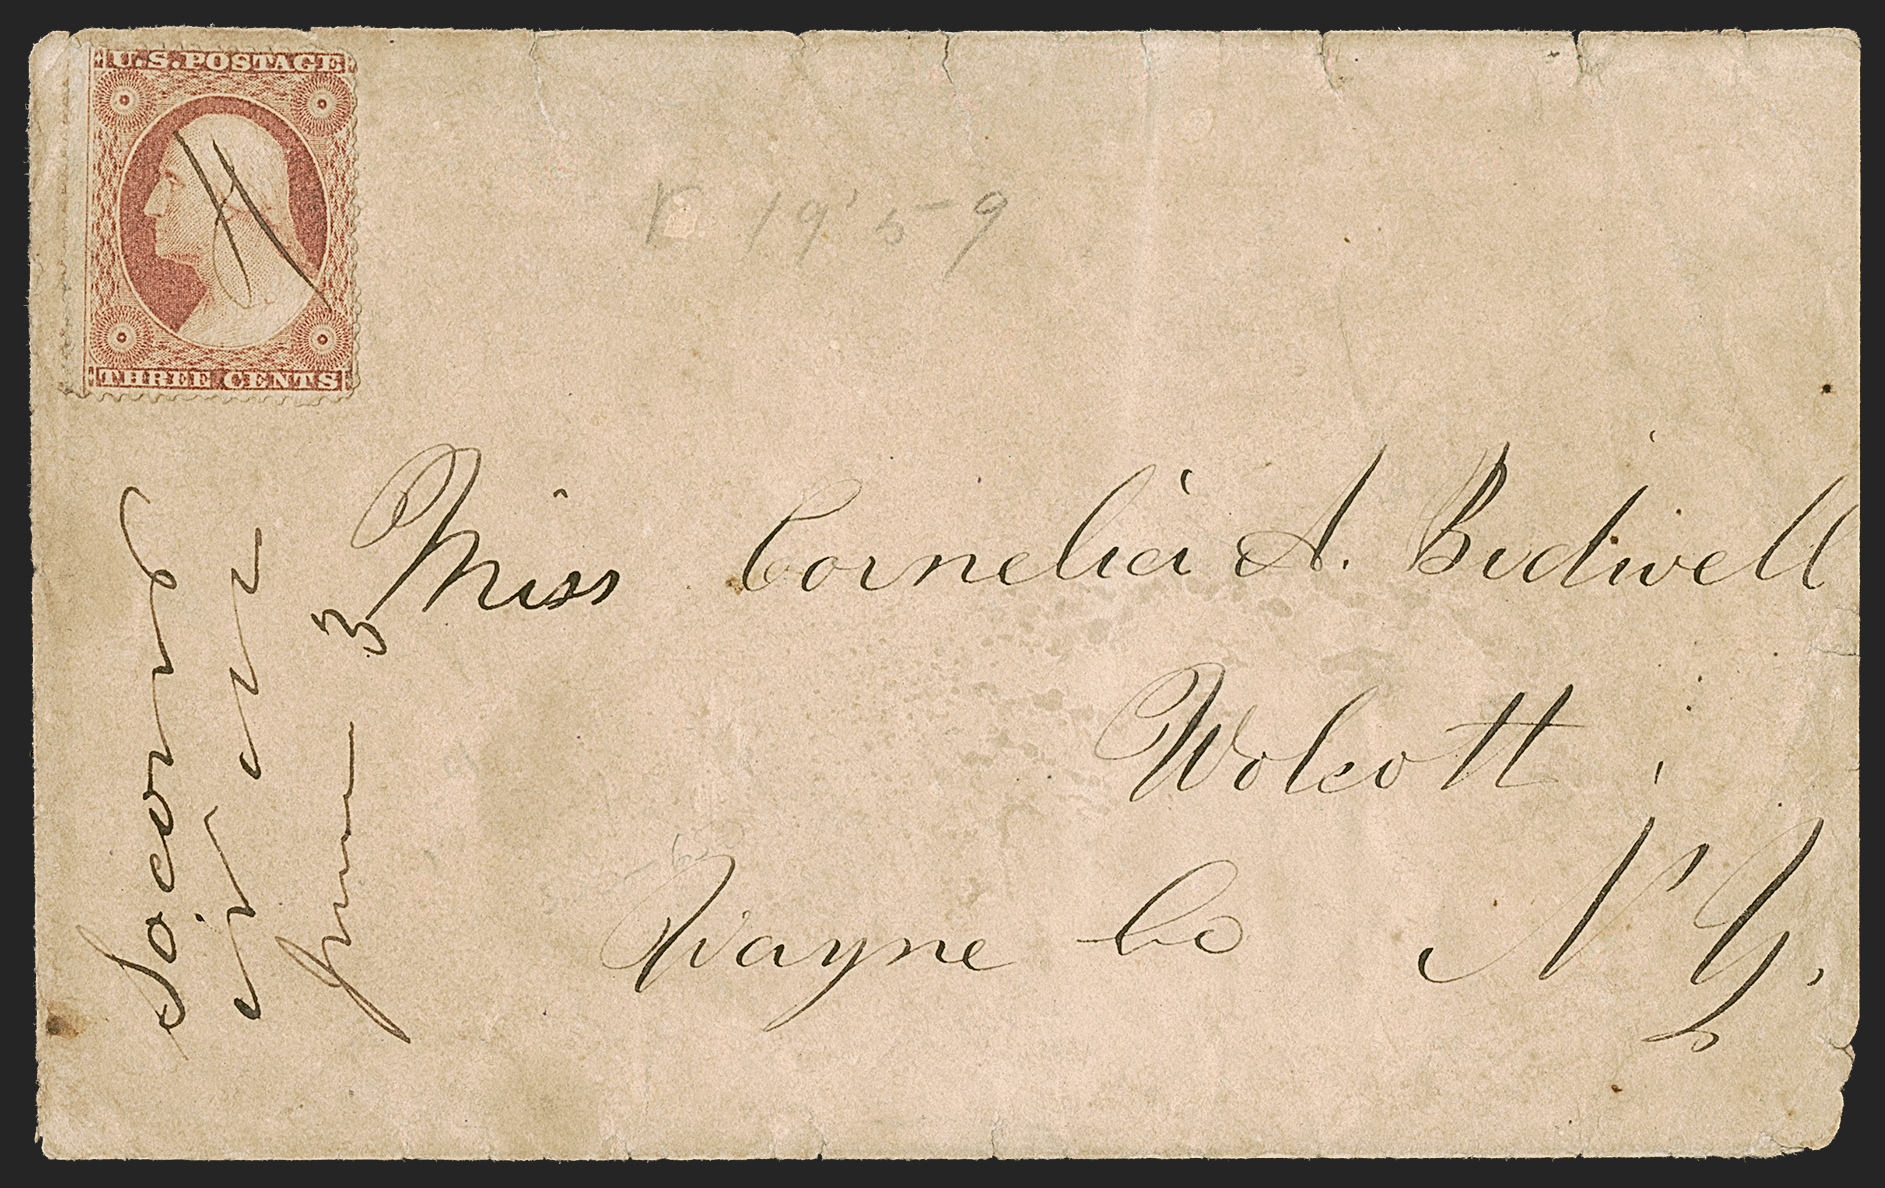 U.S. POSTAGE
THREE CENTS
19' 59
Socorro
N M
June 3
Miss Cornelia A. Bidwell
Wolcott
Wayne Co N.Y.